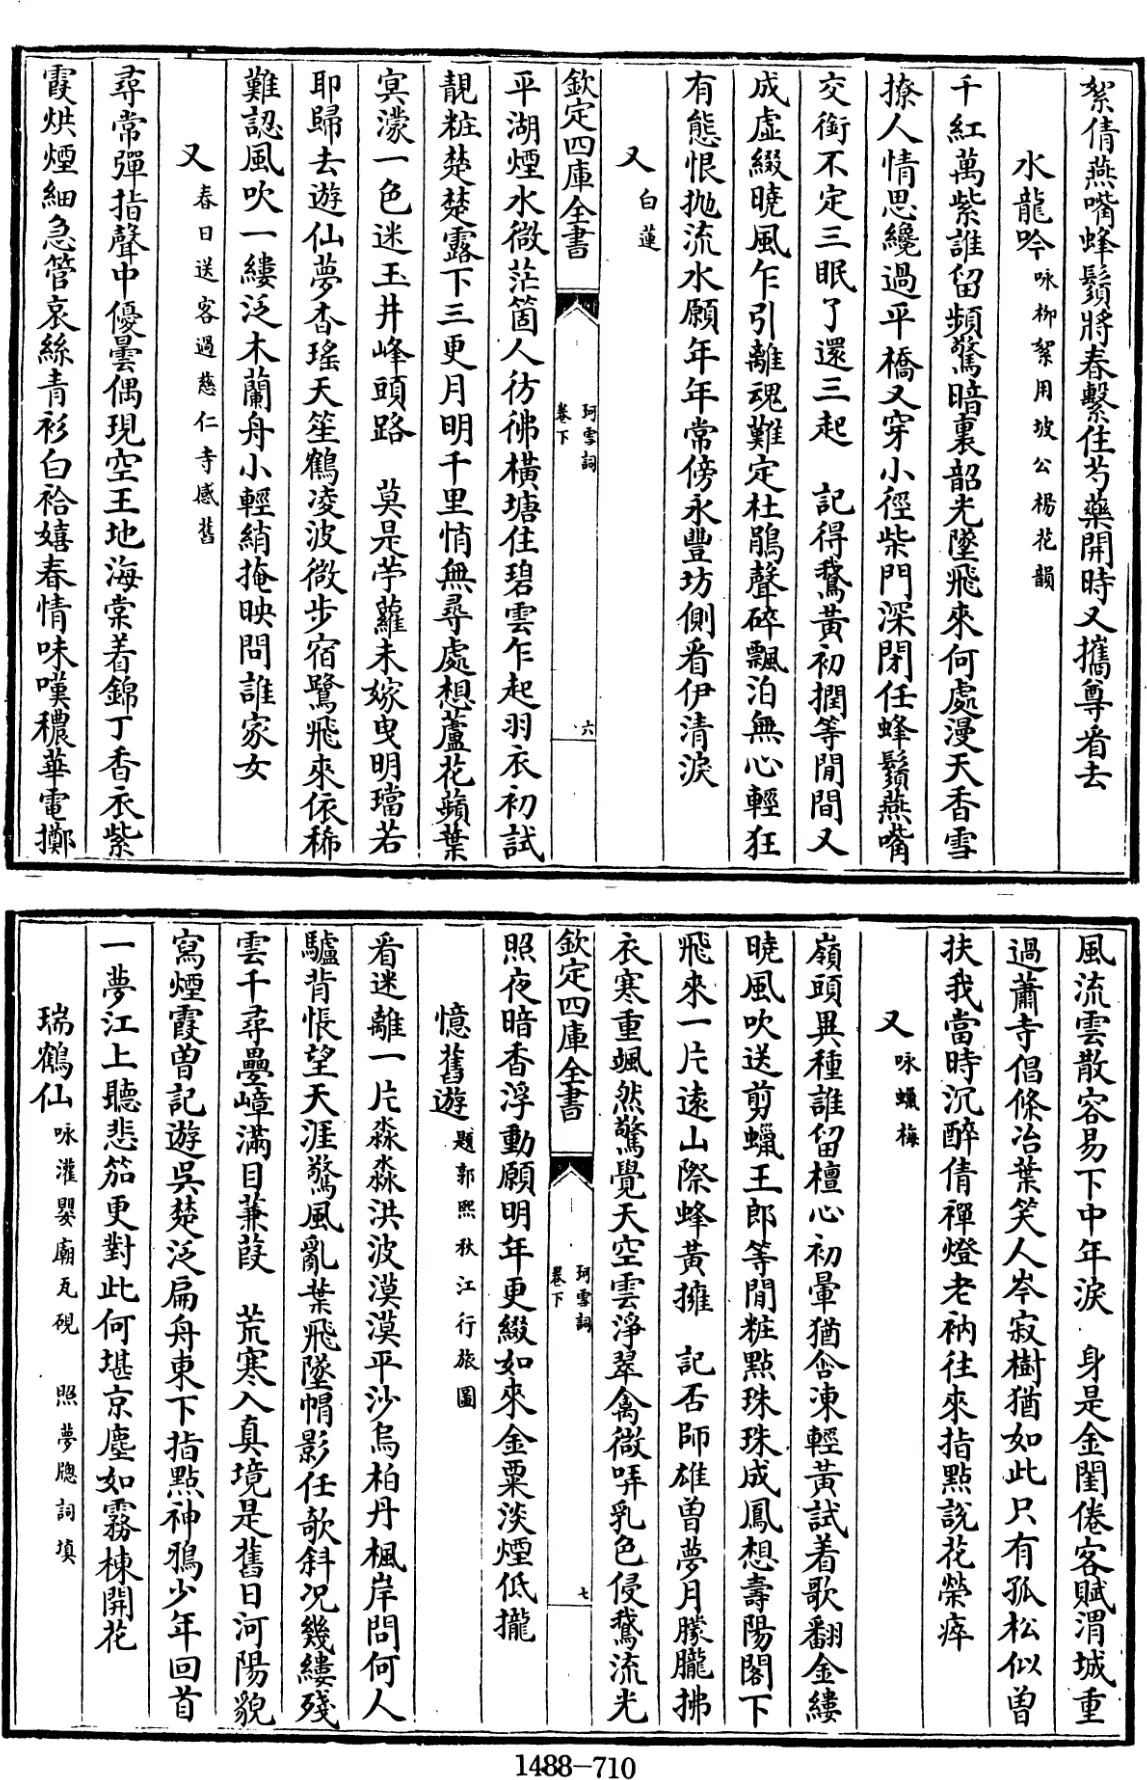 絮倩燕嘴蜂鬚將春繫住芍藥開時又攜尊看去
水龍吟 咏柳絮用坡公楊花韻
千紅萬紫誰留頻驚暗裏韶光墜飛來何處漫天香雪
撩人情思纔過平橋又穿小徑柴門深閉任蜂鬚燕嘴
交銜不定三眠了還三起 記得鵞黃初潤等閒間又
成虛綴曉風乍引離魂難定杜鵑聲碎飄泊無心輕狂
有態恨拋流水願年年常傍永豐坊側看伊清淚
又 白蓮
欽定四庫全書
珂雪詞
卷下
六
平湖煙水微茫箇人彷彿橫塘住碧雲乍起羽衣初試
靚粧楚楚露下三更月明千里悄無尋處想蘆花蘋葉
冥濛一色迷玉井峰頭路 莫是苧蘿未嫁曳明璫若
耶歸去遊仙夢杳瑤天笙鶴凌波微步宿鷺飛來依稀
難認風吹一縷泛木蘭舟小輕綃掩映問誰家女
又 春日送客過慈仁寺感舊
尋常彈指聲中優曇偶現空王地海棠着錦丁香衣紫
霞烘煙細急管哀絲青衫白袷嬉春情味嘆穠華電擲
風流雲散容易下中年淚 身是金閨倦客賦渭城重
過蕭寺倡條冶葉笑人岑寂樹猶如此只有孤松似曾
扶我當時沉醉倩禪燈老衲往來指點說花榮瘁
又 咏蠟梅
嶺頭異種誰留檀心初暈猶含凍輕黃試着歌翻金縷
曉風吹送剪蠟王郎等閒粧點珠珠成鳳想壽陽閣下
飛來一片遠山際蜂黃擁 記否師雄曾夢月朦朧拂
衣寒重颯然驚覺天空雲淨翠禽微哢乳色侵鵞流光
欽定四庫全書
珂雪詞
卷下
七
照夜暗香浮動願明年更綴如來金粟淡煙低攏
憶舊遊 題郭熙秋江行旅圖
看迷離一片淼淼洪波漠漠平沙烏桕丹楓岸問何人
驢背悵望天涯驚風亂葉飛墜帽影任欹斜況幾縷殘
雲千尋疊嶂滿目蒹葭 荒寒入真境是舊日河陽貌
寫煙霞曽記遊吳楚泛扁舟東下指點神鴉少年回首
一夢江上聽悲笳更對此何堪京塵如霧棟開花
瑞鶴仙 咏灌嬰廟瓦硯 照夢牕詞填
1488—710